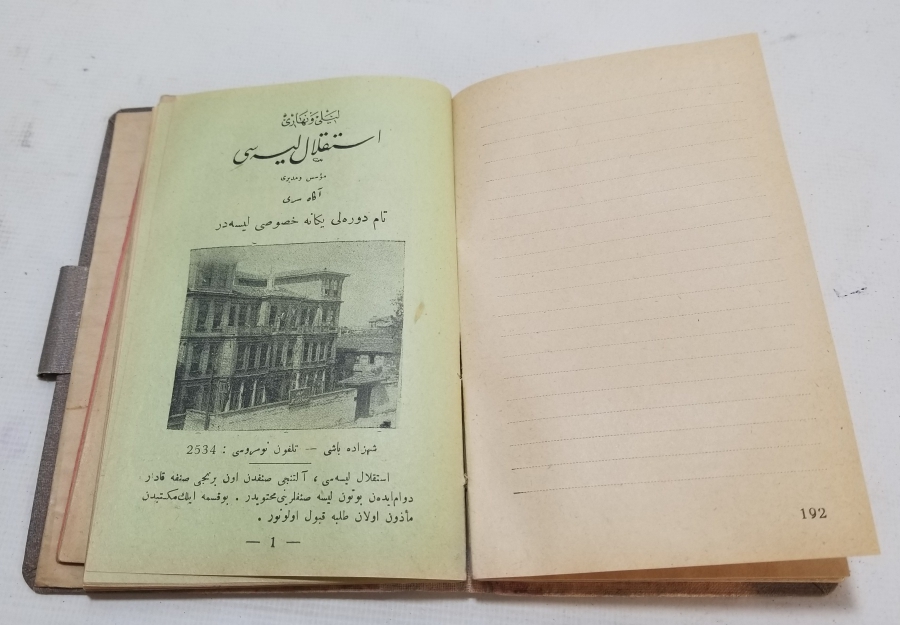 ليلى و نهارى
استقلال ليسه‌سى
مؤسس ومديرى
آگاه سرى
تام دوره‌لى يگانه خصوصى ليسه‌در
شهزاده باشى — تلفون نوسروسى : 2534
استقلال ليسه‌سى ، آلتنجى صنفدن اون برنجى صنفه قادار
دوام‌ايده‌ن بوتون ليسه صنفلرينى محتويدر . بوقسمه ايلك‌مكتبدن
مأذون اولان طلبه قبول اولونور .
— 1 —
192